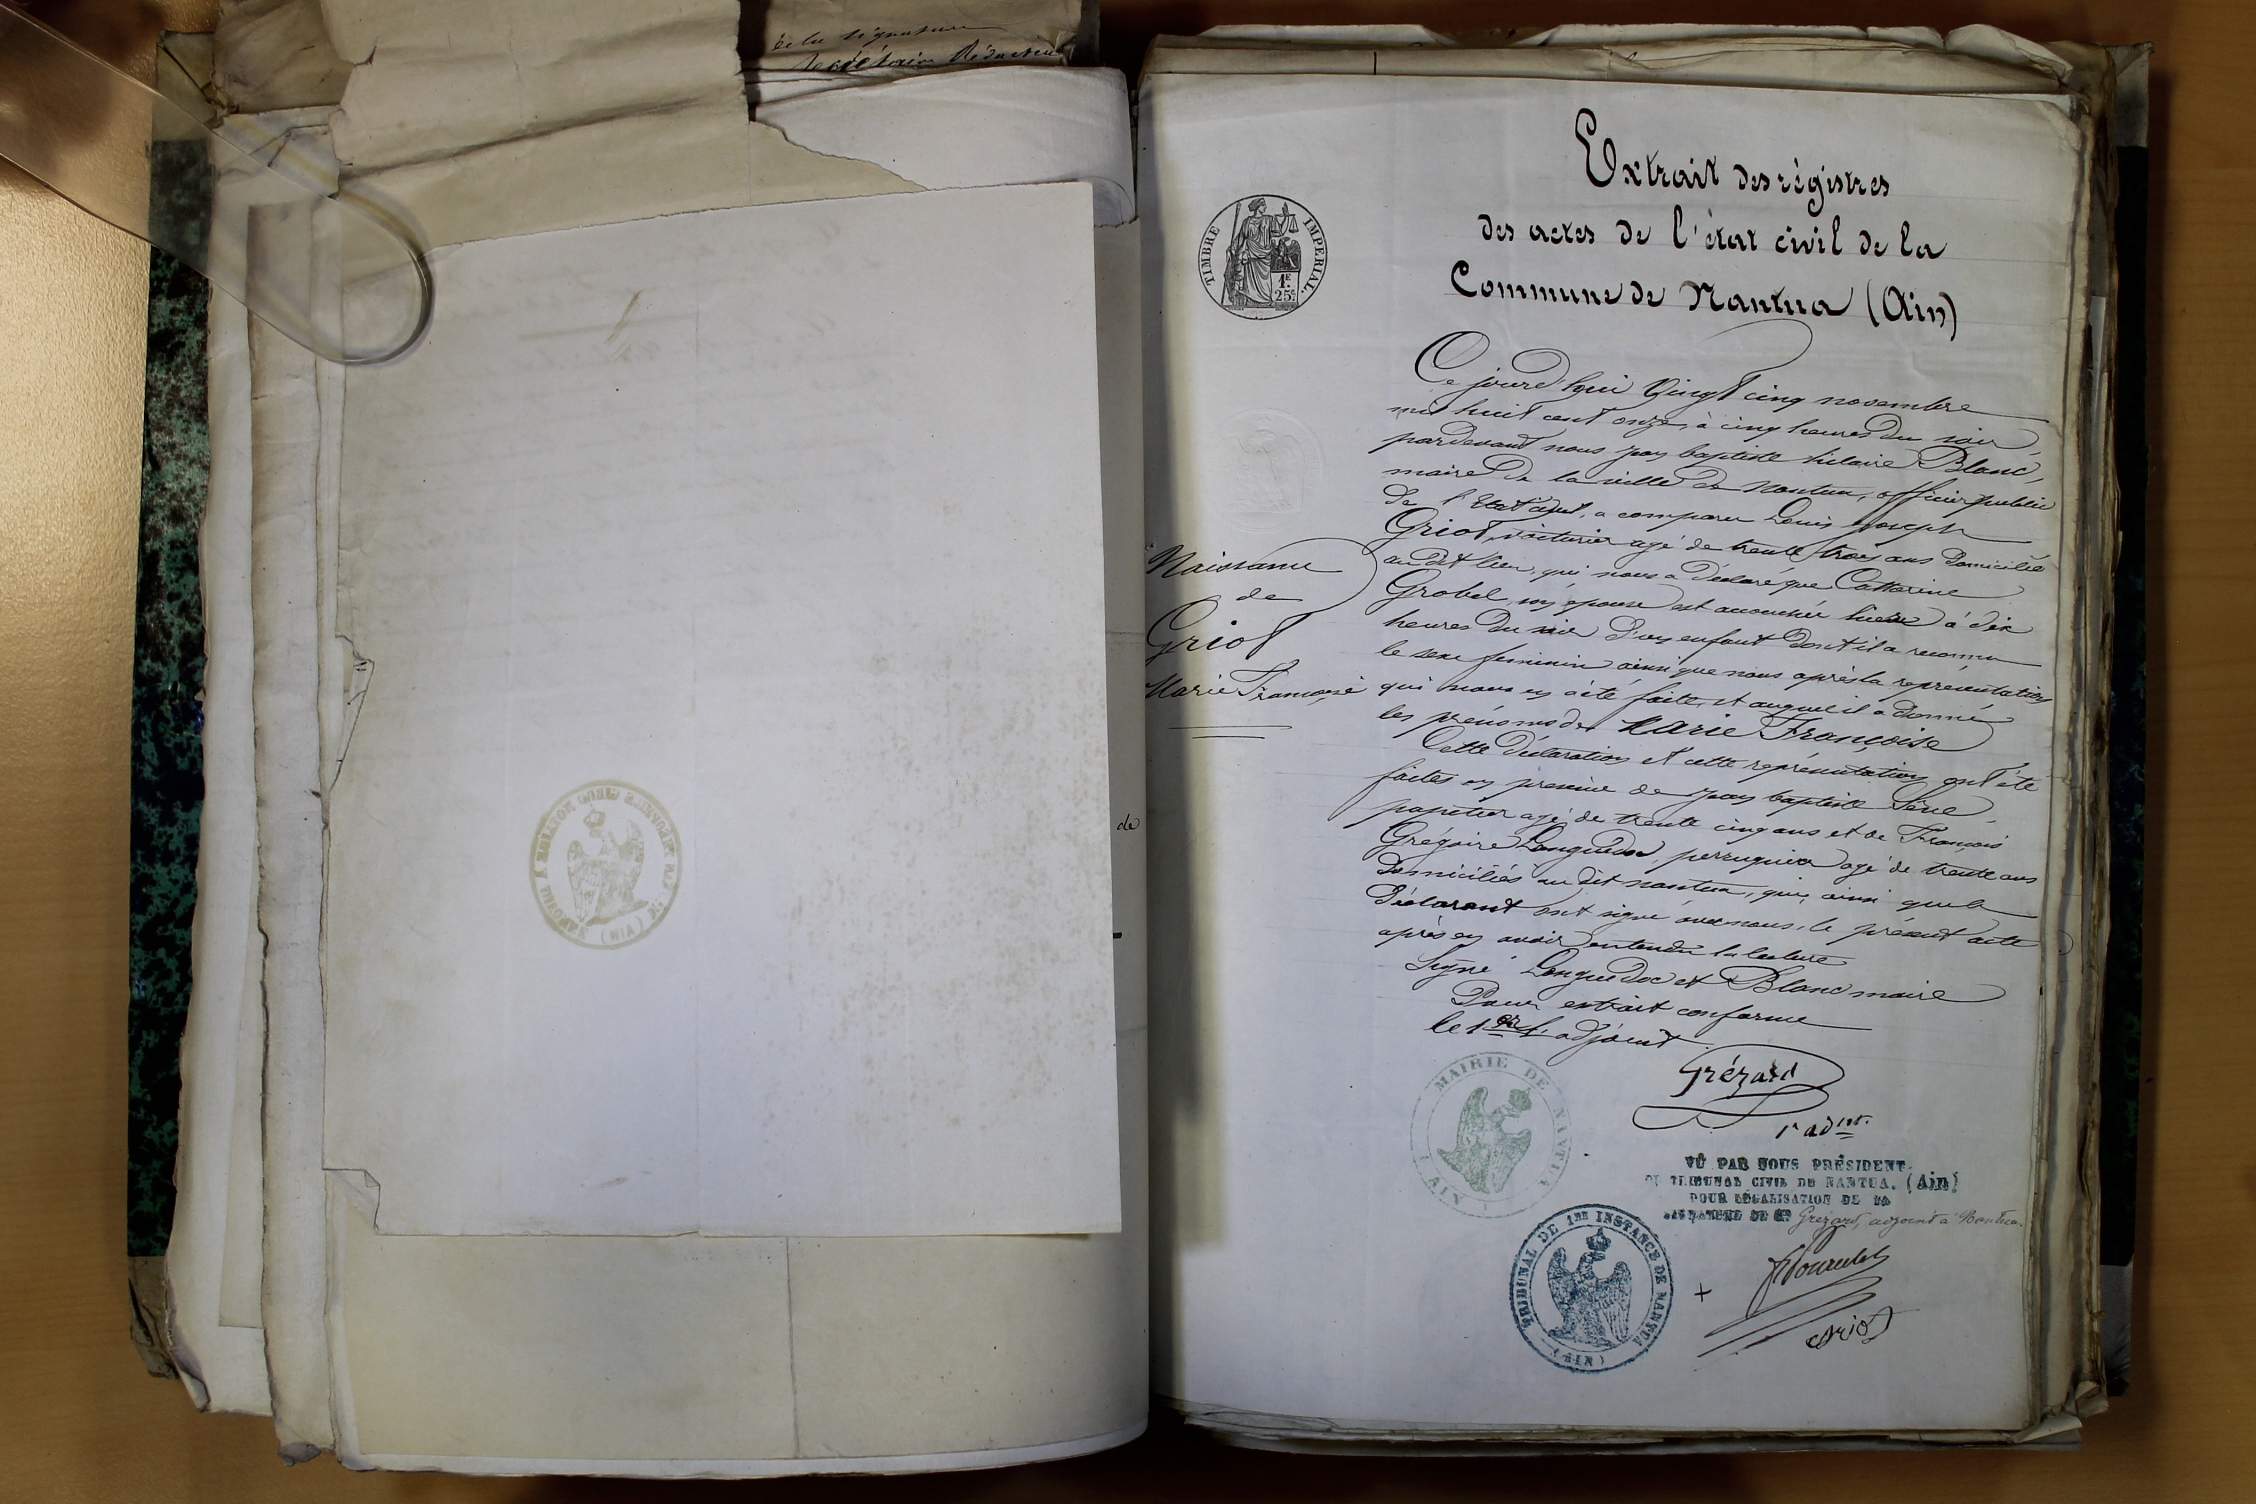 de la signature
Secrétaire Rédacteur
de
TIMBRE IMPERIAL.
1F
25c
Extrait des régistres
des actes de l'état civil de la
Commune de Nantua (Ain)
Naissance
de
Griot
Marie Françoise
Ce jourd'hui Vingt cinq novembre
mil huit cent onze, à cinq heures du soir
pardevant nous jean baptiste hilaire Blanc,
maire de la ville de Nantua, officier public
de l'Etat civil, a comparu Louis Joseph
Griot, voiturier agé de trente trois ans domicilié
au dit lieu, qui nous a déclaré que Catherine
Grobel, son épouse est accouchée hier à dix
heures du soir d'un enfant dont il a reconnu
le sexe feminin ainsi que nous après la représentation
qui nous en a été faite, et auquel il a donné
les prénoms de Marie Françoise
Cette déclaration et cette représentation ont été
faites en présence de jean baptiste Sève,
papetier agé de trente cinq ans et de François
Grégoire Languedoc, perruquier agé de trente ans
domiciliés au dit nantua, qui, ainsi que le
déclarant ont signé avec nous, le présent acte
après en avoir entendu la lecture
Signé Languedoc et Blanc maire
Pour extrait conforme
le 1er adjoint
Grézard
1r adnt.
MAIRIE DE NANTUA
(AIN)
VU PAR NOUS PRÉSIDENT
DU TRIBUNAL CIVIL DE NANTUA. (Ain)
POUR LÉGALISATION DE LA
SIGNATURE DE Mr Grézard, adjoint à Nantua.
TRIBUNAL DE 1RE INSTANCE DE NANTUA
(AIN)
+